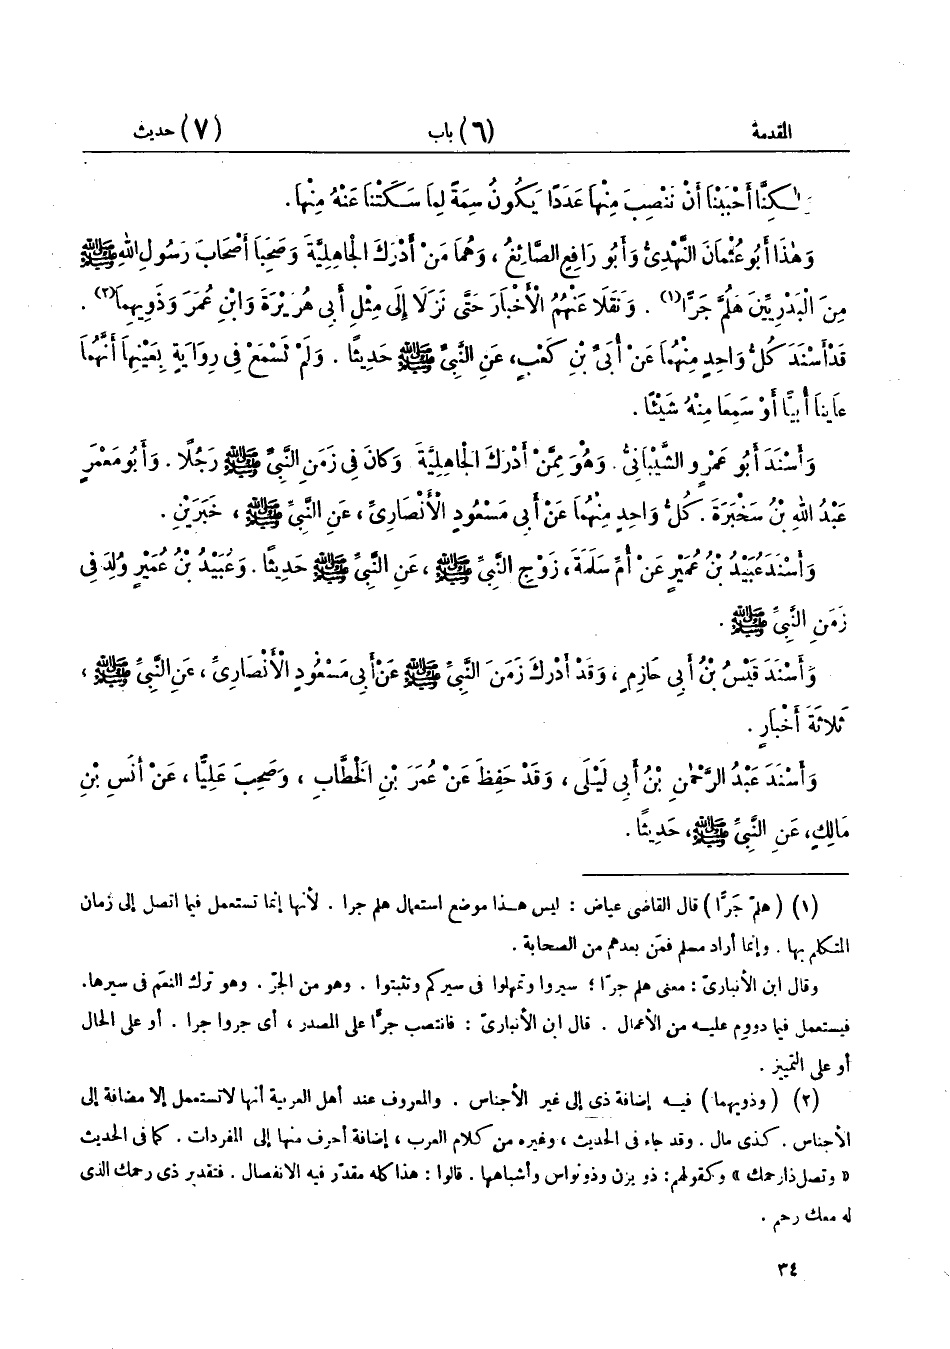 المقدمة (٦) باب (٧) حديث
لٰكِنَّا أَحْبَبْنَا أَنْ نَنْصِبَ مِنْهَا عَدَدًا يَكُونُ سِمَةً لِمَا سَكَتْنَا عَنْهُ مِنْهَا.
وَهٰذَا أَبُو عُثْمَانَ النَّهْدِيُّ وَأَبُو رَافِعٍ الصَّائِغُ ، وَهُمَا مَنْ أَدْرَكَ الْجَاهِلِيَّةَ وَصَحِبَا أَصْحَابَ رَسُولِ اللهِ ﷺ
مِنَ الْبَدْرِيِّينَ هَلُمَّ جَرًّا(١) . وَنَقَلَا عَنْهُمُ الْأَخْبَارَ حَتَّى نَزَلَا إِلَى مِثْلِ أَبِي هُرَيْرَةَ وَابْنِ عُمَرَ وَذَوِيهِمَا(٢) .
قَدْ أَسْنَدَ كُلُّ وَاحِدٍ مِنْهُمَا عَنْ أُبَيِّ بْنِ كَعْبٍ، عَنِ النَّبِيِّ ﷺ حَدِيثًا . وَلَمْ نَسْمَعْ فِي رِوَايَةٍ بِعَيْنِهَا أَنَّهُمَا
عَايَنَا أُبَيًّا أَوْ سَمِعَا مِنْهُ شَيْئًا .
وَأَسْنَدَ أَبُو عَمْرٍو الشَّيْبَانِيُّ . وَهُوَ مِمَّنْ أَدْرَكَ الْجَاهِلِيَّةَ وَكَانَ فِي زَمَنِ النَّبِيِّ ﷺ رَجُلًا . وَأَبُو مَعْمَرٍ
عَبْدُ اللهِ بْنُ سَخْبَرَةَ . كُلُّ وَاحِدٍ مِنْهُمَا عَنْ أَبِي مَسْعُودٍ الْأَنْصَارِيِّ ، عَنِ النَّبِيِّ ﷺ ، خَبَرَيْنِ .
وَأَسْنَدَ عُبَيْدُ بْنُ عُمَيْرٍ عَنْ أُمِّ سَلَمَةَ، زَوْجِ النَّبِيِّ ﷺ ، عَنِ النَّبِيِّ ﷺ حَدِيثًا . وَعُبَيْدُ بْنُ عُمَيْرٍ وُلِدَ فِي
زَمَنِ النَّبِيِّ ﷺ .
وَأَسْنَدَ قَيْسُ بْنُ أَبِي حَازِمٍ ، وَقَدْ أَدْرَكَ زَمَنَ النَّبِيِّ ﷺ عَنْ أَبِي مَسْعُودٍ الْأَنْصَارِيِّ ، عَنِ النَّبِيِّ ﷺ ،
ثَلَاثَةَ أَخْبَارٍ .
وَأَسْنَدَ عَبْدُ الرَّحْمٰنِ بْنُ أَبِي لَيْلَى ، وَقَدْ حَفِظَ عَنْ عُمَرَ بْنِ الْخَطَّابِ ، وَصَحِبَ عَلِيًّا ، عَنْ أَنَسِ بْنِ
مَالِكٍ، عَنِ النَّبِيِّ ﷺ، حَدِيثًا .
(١) (هلمّ جَرًّا) قال القاضى عياض : ليس هـذا موضع استعمال هلم جرا . لأنها إنما تستعمل فيما اتصل إلى زمان
المتكلم بها . وإنما أراد مسلم فمَن بعدهم من الصحابة .
وقال ابن الأنبارىّ : معنى هلم جرّا ؛ سيروا وتمهلوا فى سيركم وتثبتوا . وهو من الجرّ . وهو ترك النعَم فى سيرها.
فيستعمل فيما دووم عليـه من الأعمال . قال ابن الأنبارىّ : فانتصب جرًّا على المصدر ، أى جروا جرا . أو على الحال
أو على التمييز .
(٢) (وذويهما) فيـه إضافة ذى إلى غير الأجناس . والمعروف عند أهل العربية أنها لا تستعمل إلا مضافة إلى
الأجناس . كذى مال . وقد جاء فى الحديث ، وغيره من كلام العرب ، إضافة أحرف منها إلى المفردات . كما فى الحديث
« وتصل ذا رحمك » وكقولهم: ذو يزن وذو نواس وأشباهها . قالوا : هذا كله مقدّر فيه الانفصال . فتقدير ذى رحمك الذى
له معك رحم .
٣٤